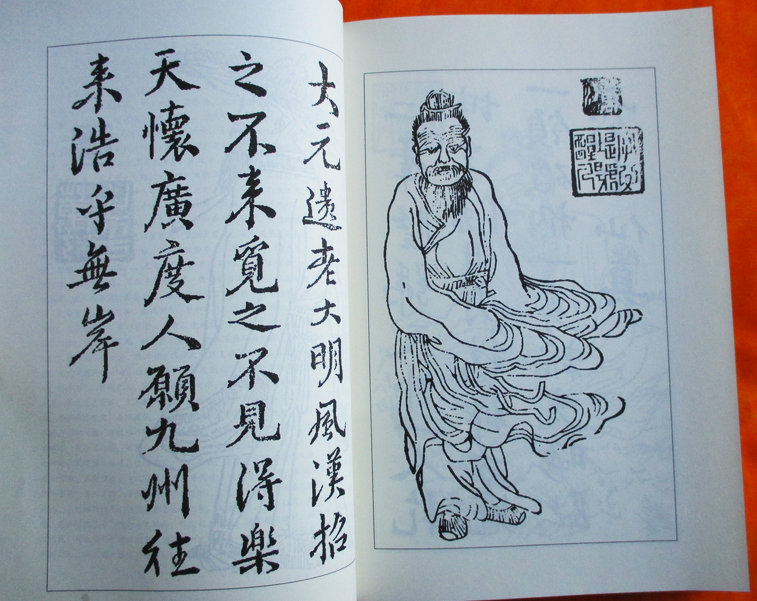 大元遺老大明風漢招
之不来覓之不見得樂
天懷廣度人願九州往
来浩乎無岸